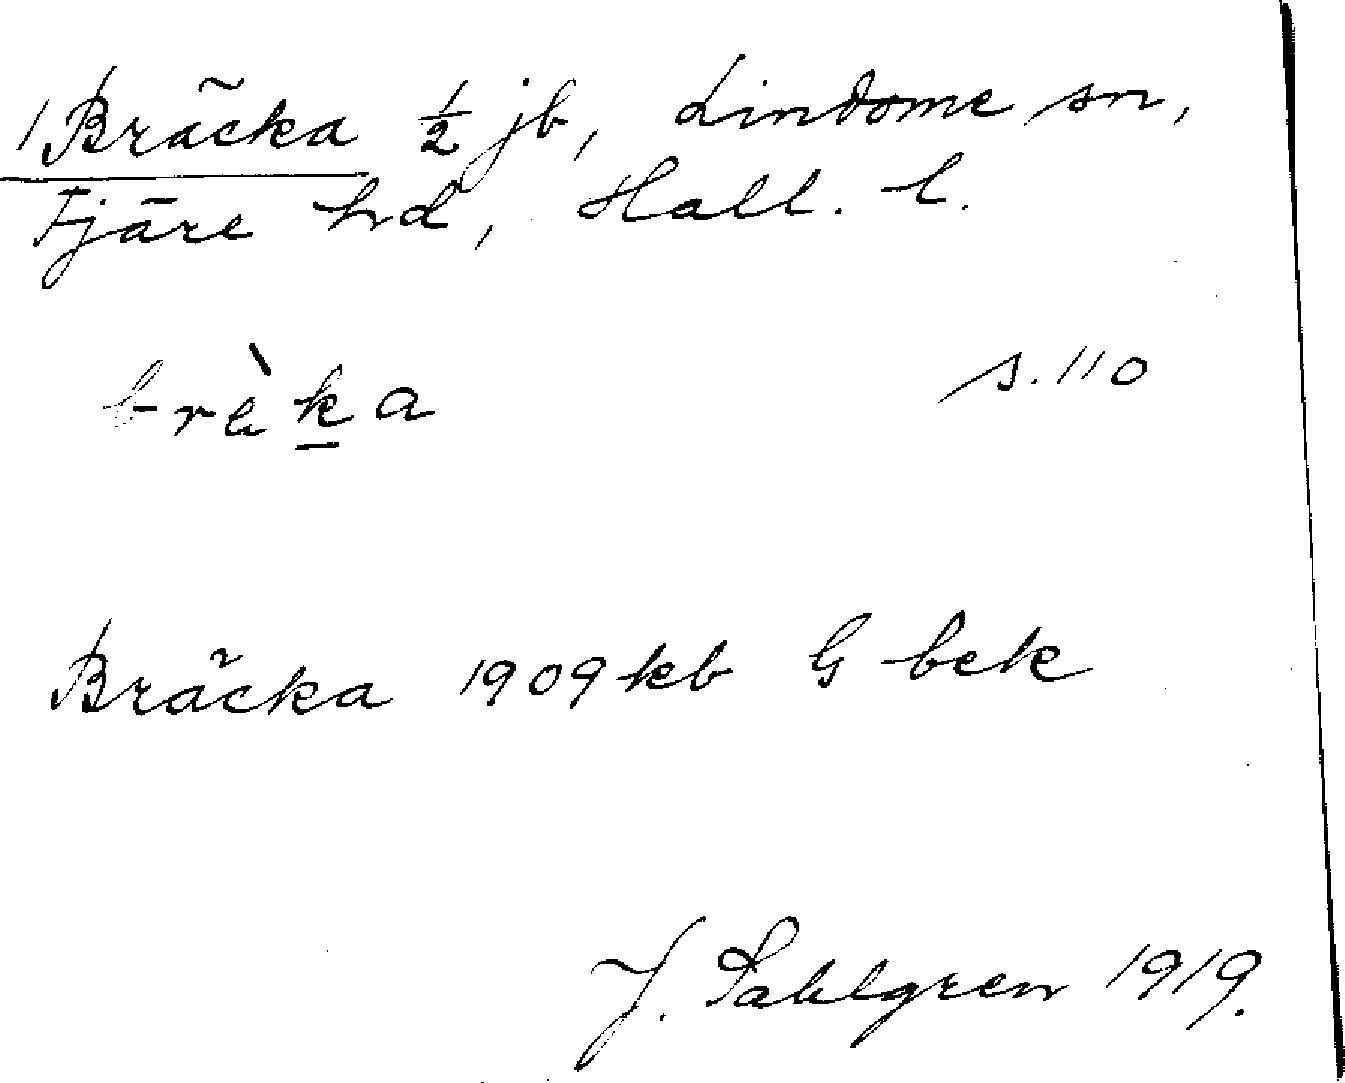 1 Bräcka ½ jb, Lindome sn,
Fjäre hd, Hall. l.
brèka s. 110
Bräcka 1909 kb G bek
J. Sahlgren 1919.